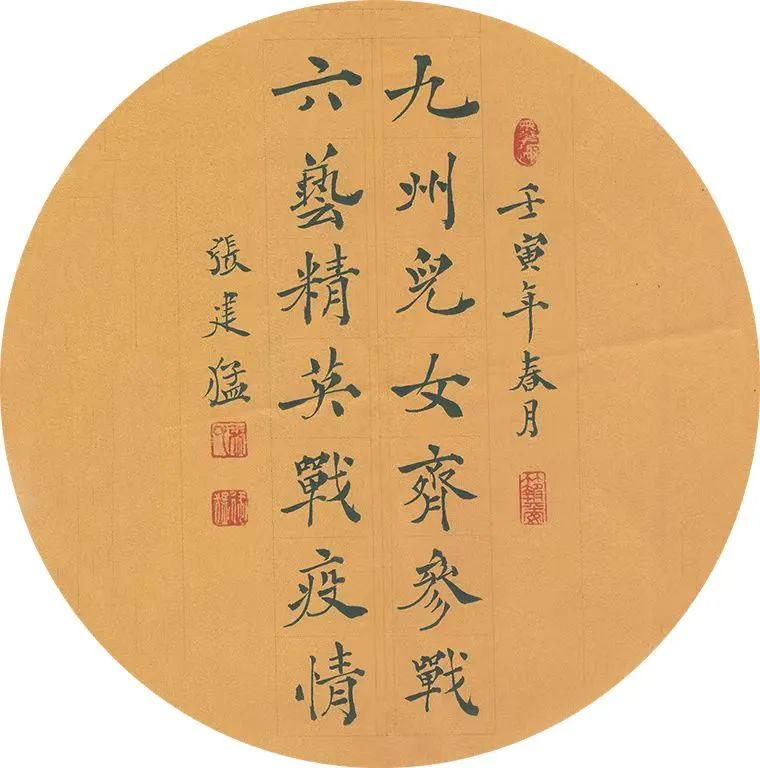 壬寅年春月
九州兒女齊參戰
六藝精英戰疫情
張建猛